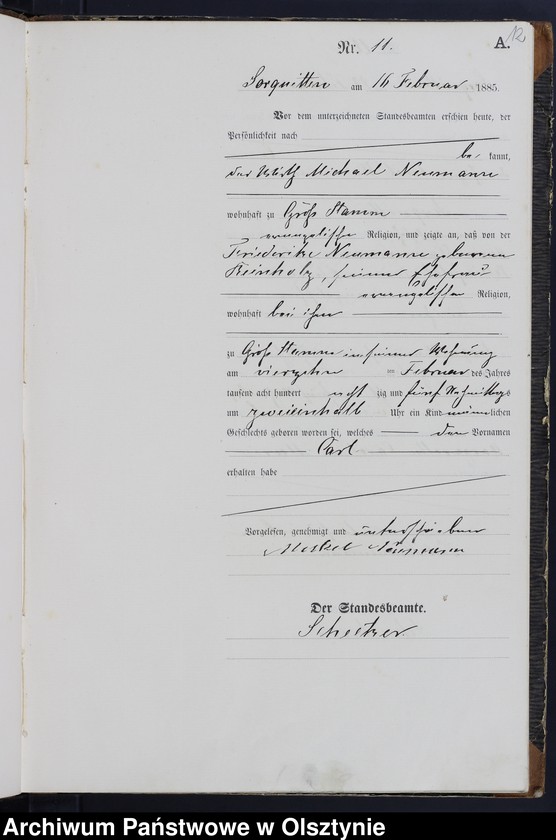 12
Nr. 11. A.
Sorquitten am 16 Februar 1885.
Vor dem unterzeichneten Standesbeamten erschien heute, der
Persönlichkeit nach
be kannt,
der Wirth Michael Neumann
wohnhaft zu Groß Stamm
evangelischer Religion, und zeigte an, daß von der
Friederike Neumann geborenen
Reinholz, seiner Ehefrau
evangelischer Religion,
wohnhaft bei ihm
zu Groß Stamm in seiner Wohnung
am vierzehn = Februar des Jahres
tausend acht hundert acht zig und fünf Nachmittags
um zweieinhalb Uhr ein Kind männlichen
Geschlechts geboren worden sei, welches den Vornamen
Carl
erhalten habe
Vorgelesen, genehmigt und unterschrieben
Neumann
Der Standesbeamte.
Archiwum Państwowe w Olsztynie